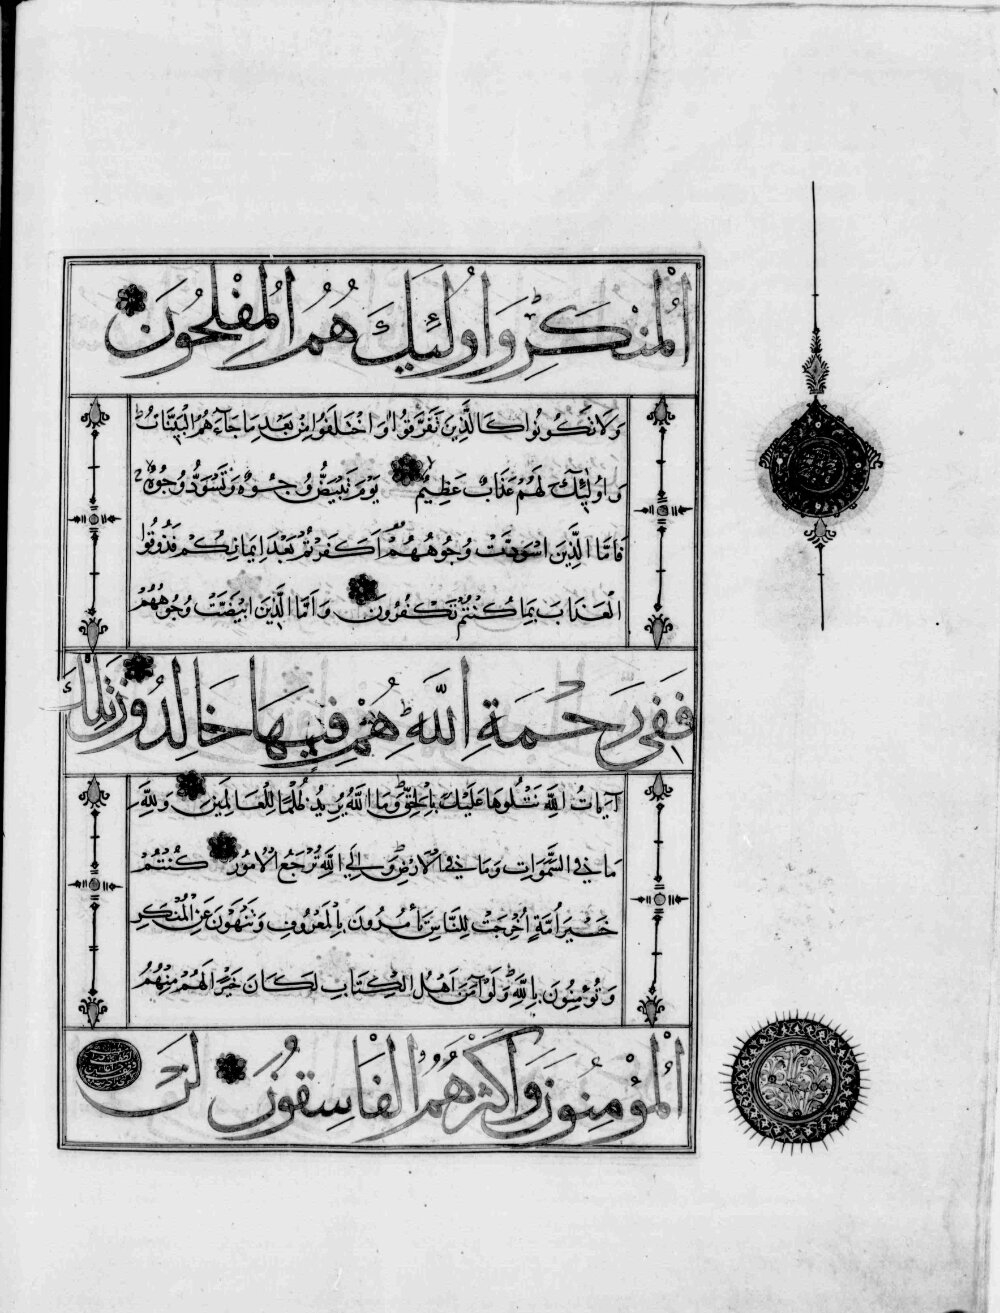 اَلْمُنْكَرِ وَاُولٰئِكَ هُمُ الْمُفْلِحُونَ
وَلَا تَكُونُوا كَالَّذِينَ تَفَرَّقُوا وَاخْتَلَفُوا مِنْ بَعْدِ مَا جَاءَهُمُ الْبَيِّنَاتُ
وَاُولٰئِكَ لَهُمْ عَذَابٌ عَظِيمٌ يَوْمَ تَبْيَضُّ وُجُوهٌ وَتَسْوَدُّ وُجُوهٌ
فَاَمَّا الَّذِينَ اسْوَدَّتْ وُجُوهُهُمْ اَكَفَرْتُمْ بَعْدَ اِيمَانِكُمْ فَذُوقُوا
الْعَذَابَ بِمَا كُنْتُمْ تَكْفُرُونَ وَاَمَّا الَّذِينَ ابْيَضَّتْ وُجُوهُهُمْ
فَفِي رَحْمَةِ اللَّهِ هُمْ فِيهَا خَالِدُونَ تِلْكَ
آيَاتُ اللَّهِ نَتْلُوهَا عَلَيْكَ بِالْحَقِّ وَمَا اللَّهُ يُرِيدُ ظُلْمًا لِلْعَالَمِينَ وَلِلَّهِ
مَا فِي السَّمَوَاتِ وَمَا فِي الْاَرْضِ وَاِلَى اللَّهِ تُرْجَعُ الْاُمُورُ كُنْتُمْ
خَيْرَ اُمَّةٍ اُخْرِجَتْ لِلنَّاسِ تَأْمُرُونَ بِالْمَعْرُوفِ وَتَنْهَوْنَ عَنِ الْمُنْكَرِ
وَتُؤْمِنُونَ بِاللَّهِ وَلَوْ آمَنَ اَهْلُ الْكِتَابِ لَكَانَ خَيْرًا لَهُمْ مِنْهُمُ
الْمُؤْمِنُونَ وَاَكْثَرُهُمُ الْفَاسِقُونَ لَنْ